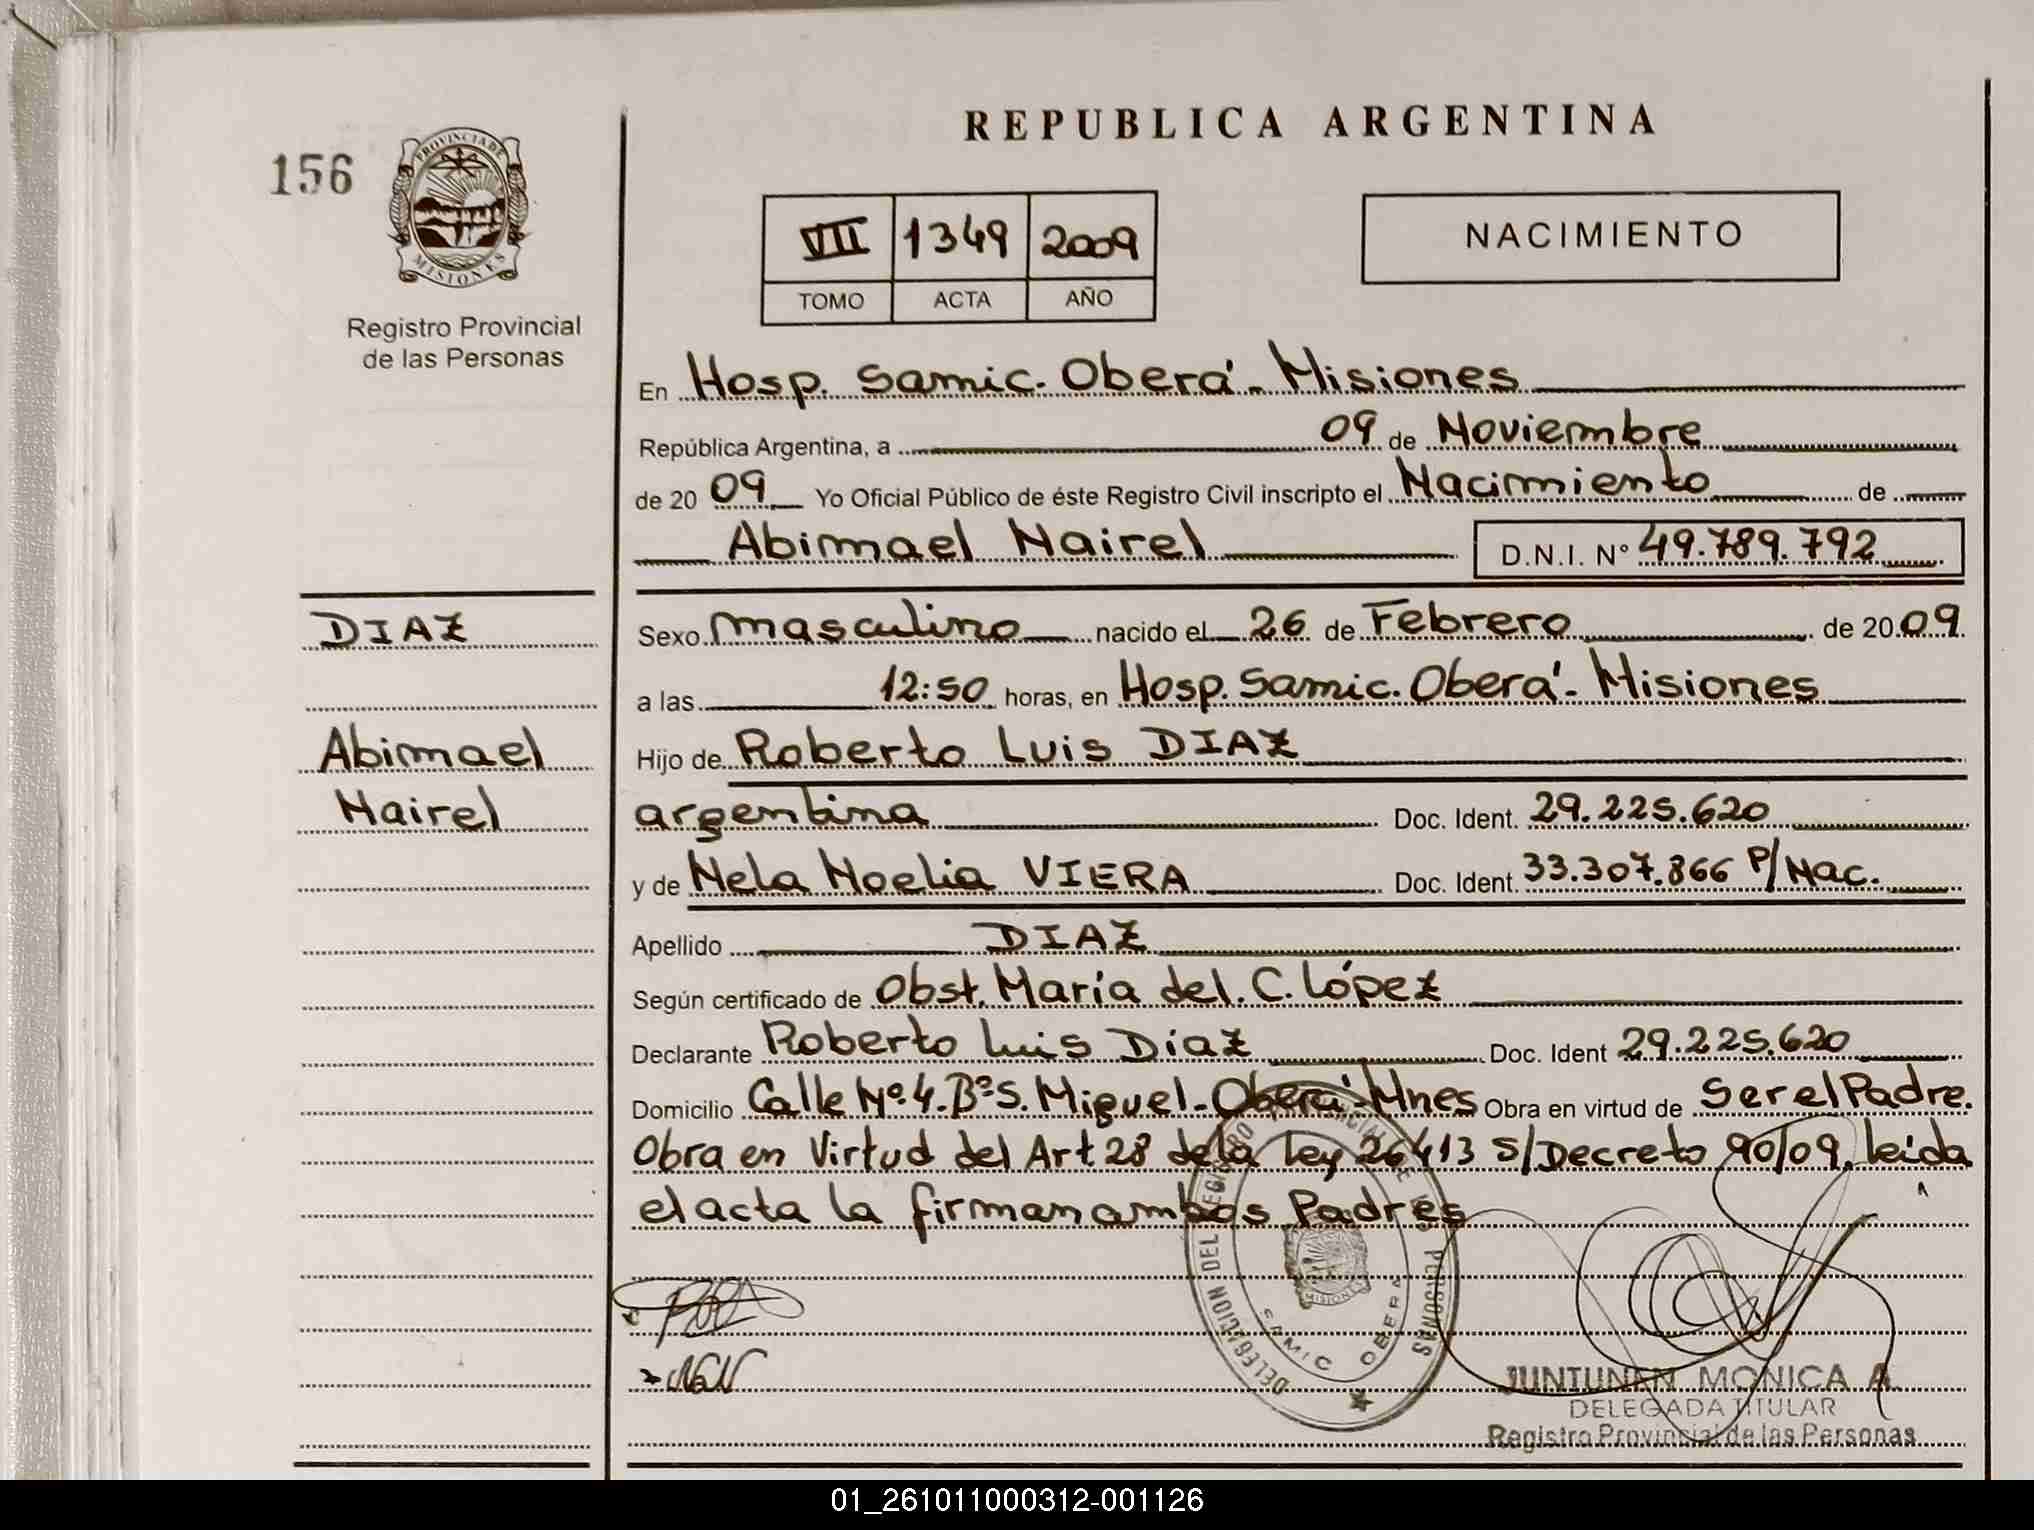 REPUBLICA ARGENTINA
156
PROVINCIA DE
MISIONES
Registro Provincial
de las Personas
VII 1349 2009
TOMO ACTA AÑO
NACIMIENTO
En Hosp. Samic. Oberá - Misiones
República Argentina, a 09 de Noviembre
de 20 09 Yo Oficial Público de éste Registro Civil inscripto el Nacimiento de
Abimael Nairel D.N.I. Nº 49.789.792
DIAZ
Abimael
Nairel
Sexo masculino nacido el 26 de Febrero de 2009.
a las 12:50 horas, en Hosp. Samic. Oberá - Misiones
Hijo de Roberto Luis DIAZ
argentina Doc. Ident. 29.225.620
y de Nela Noelia VIERA Doc. Ident. 33.307.866 P/Nac.
Apellido DIAZ
Según certificado de Obst. Maria del. C. López
Declarante Roberto Luis Diaz Doc. Ident 29.225.620
Domicilio Calle Nº 4. Bº S. Miguel - Oberá - Mnes Obra en virtud de Ser el Padre.
Obra en Virtud del Art 28 de la Ley 26413 S/Decreto 90/09, leida
el acta la firman ambos Padres
DELEGACION DEL REGISTRO PROVINCIAL DE LAS PERSONAS
SAMIC OBERA
MISIONES
JUNTUNEN MONICA A.
DELEGADA TITULAR
Registro Provincial de las Personas
01_261011000312-001126